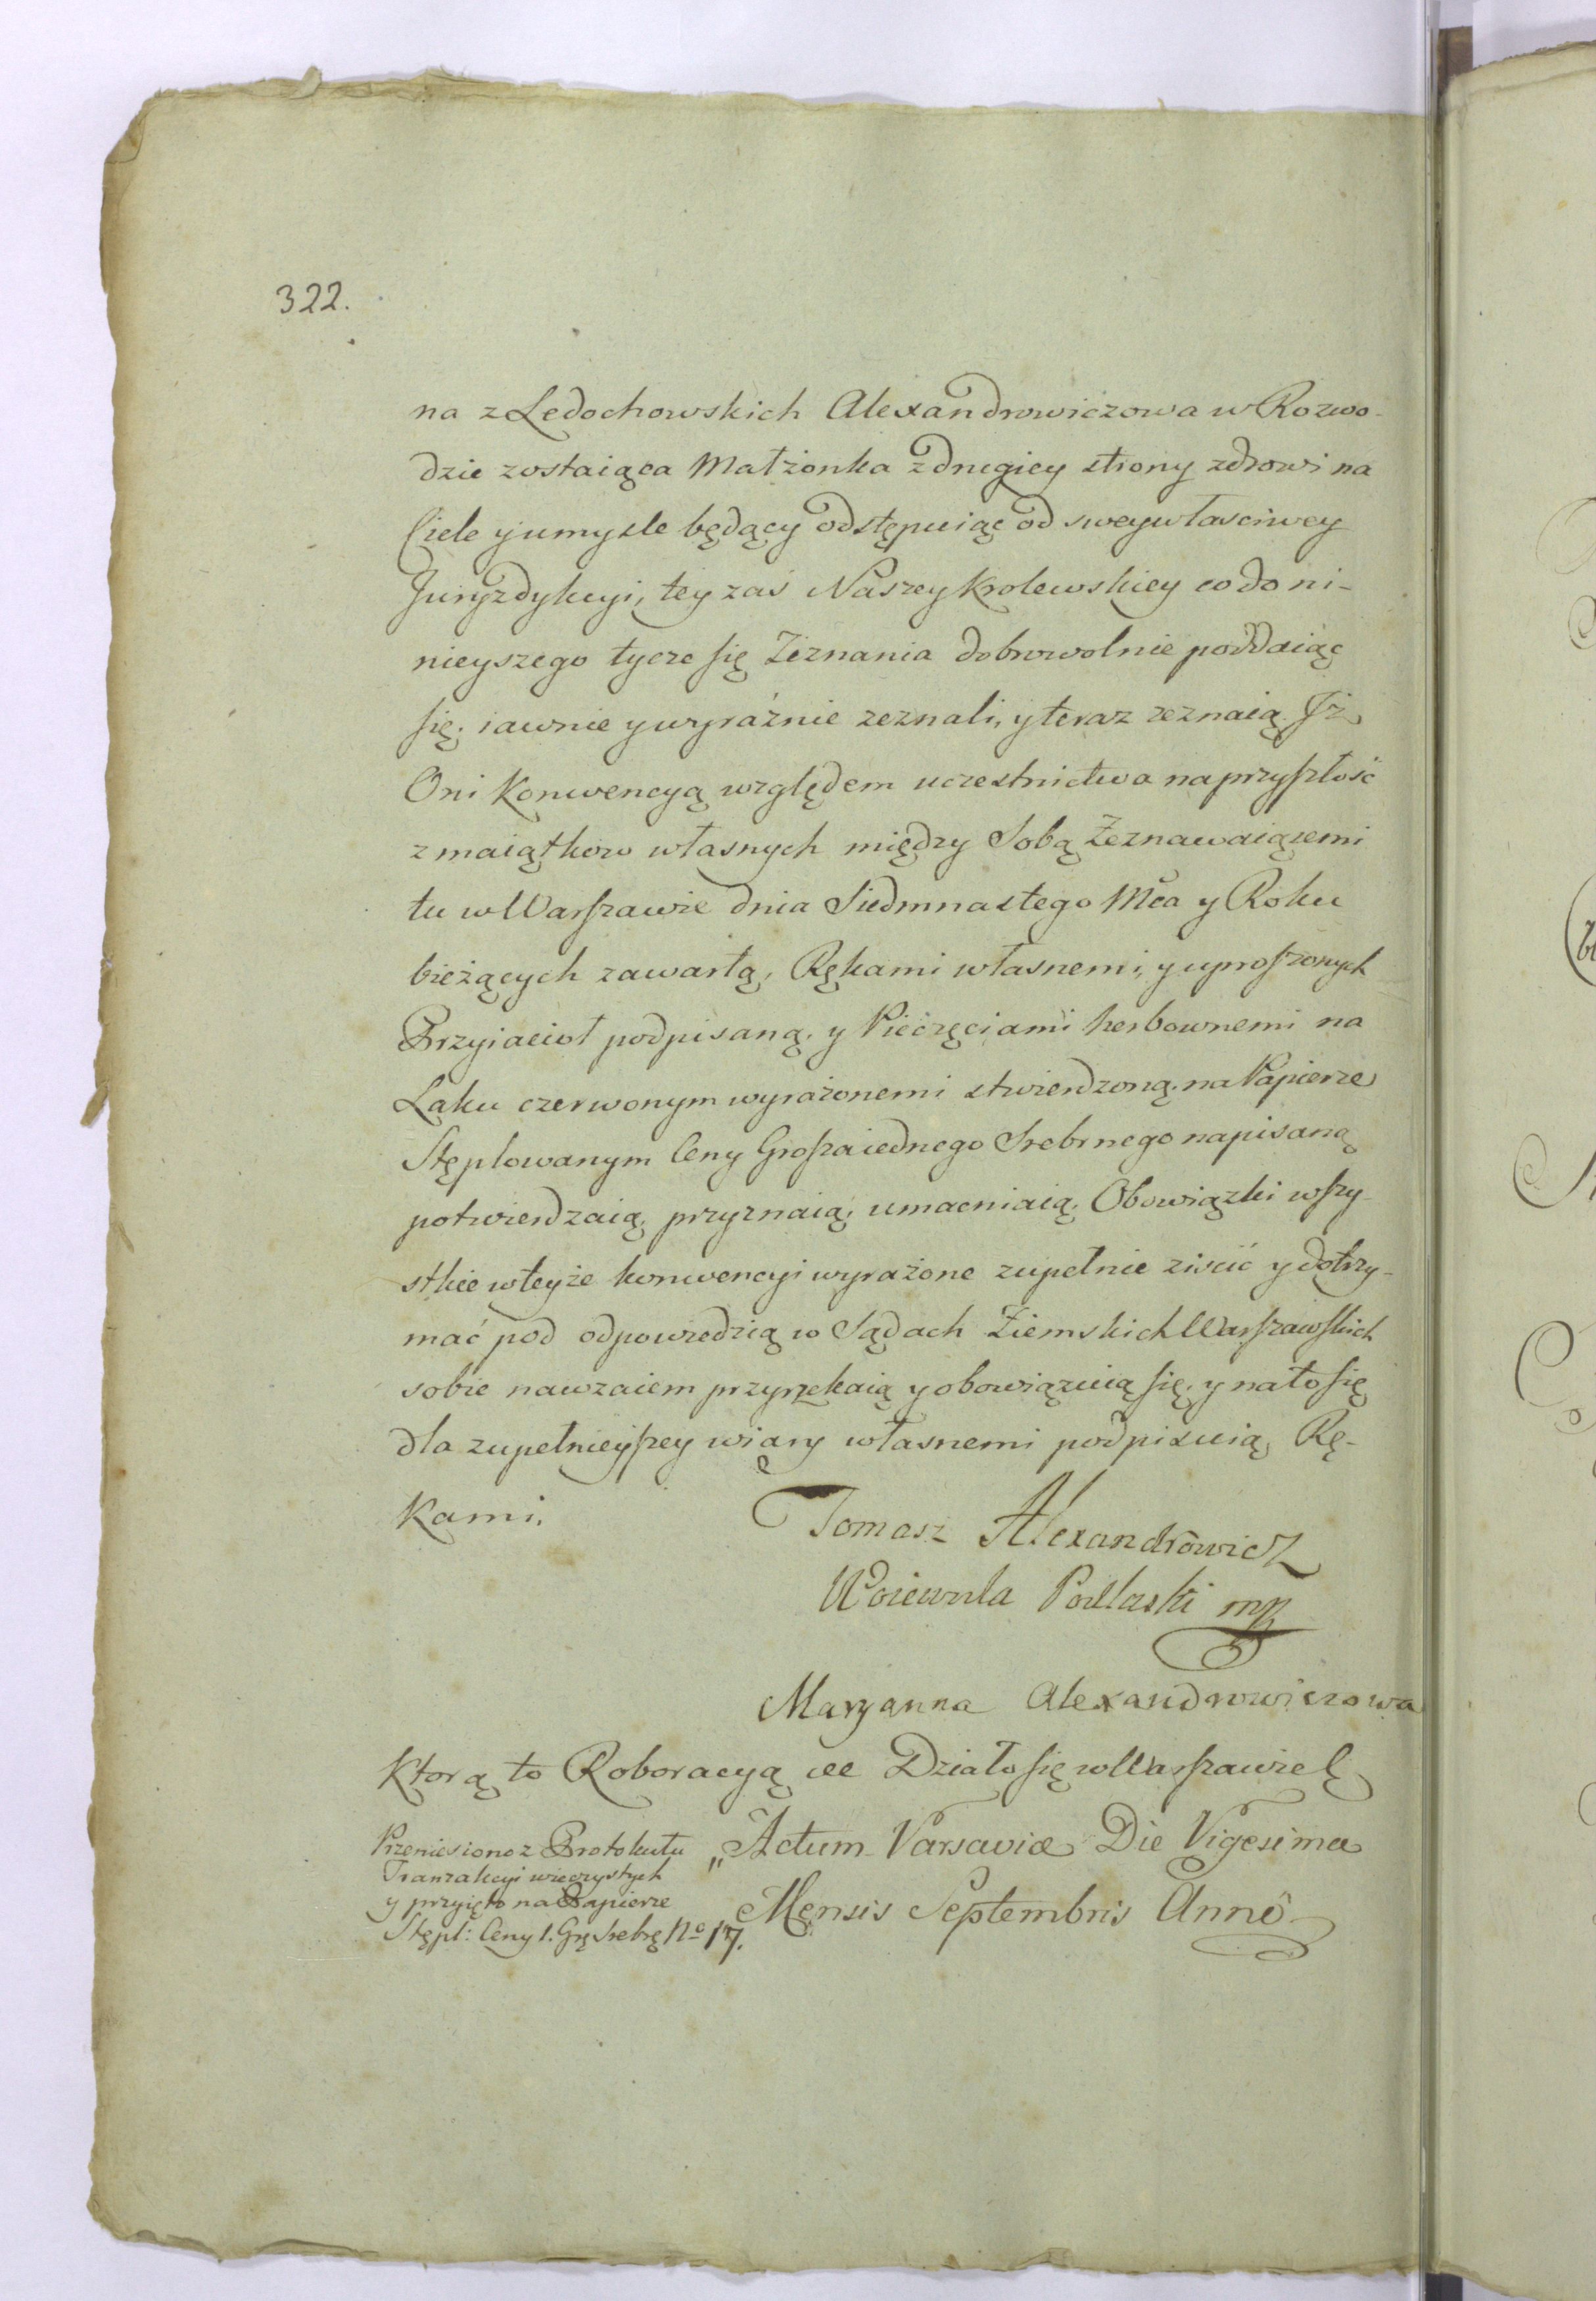 322.
na z Ledochowskich Alexandrowiczowa w Rozwo-
dzie zostaiąca Małżonka z drugiey strony zdrowi na
Ciele y umysle będący odstępuiąc od swey własciwey
Juryzdykcyi, tey zaś Naszey Krolewskiey co do ni-
nieyszego tycze się Zeznania dobrowolnie poddaiąc
się, iawnie y wyraźnie zeznali, y teraz zeznaią Jż
Oni Konwencyą względem uczestnictwa na przyszłość
z maiątkow własnych między Sobą Zeznawaiącemi
tu w Warszawie dnia Siedmnastego Mca y Roku
bieżących zawartą, Rękami własnemi, y uproszonych
Przyiacioł podpisaną, y Pieczęciami herbownemi na
Laku czerwonym wyrażonemi stwierdzoną, na Papierze
Stęplowanym Ceny Grosza iednego Srebrnego napisaną
potwierdzaią, przyznaią, umacniaią, Obowiązki wszy-
stkie w teyże konwencyi wyrażone zupełnie ziscić y dotrzy-
mać pod odpowiedzią w Sądach Ziemskich Warszawskich
sobie nawzaiem przyrzekaią y obowiązuią się, y na to się
dla zupełnieyszey wiary własnemi podpisuią Rę-
kami.
Tomasz Alexandrowicz
Woiewoda Podlaski mp
Maryanna Alexandrowiczowa
Ktorą to Roboracyą etc Działo się w Warszawie
Przeniesiono z Protokułu
Tranzakcyi wieczystych
y przyięto na Papierze
Stępl: Ceny 1. Grę Srebrę No 17.
„Actum Varsaviæ Die Vigesima
Mensis Septembris Annô